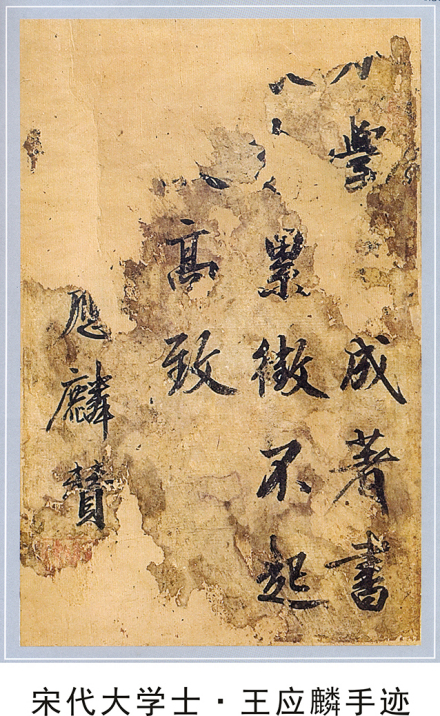 學成著書
累徵不起
高致
應麟贊
宋代大学士·王应麟手迹